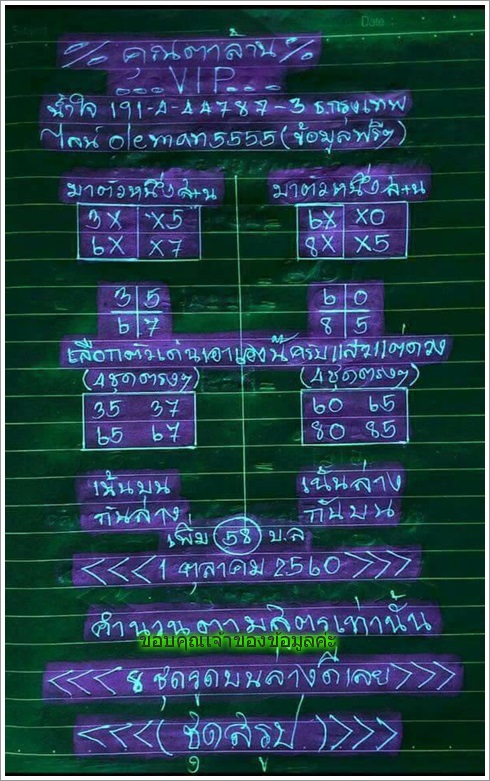 Date :
% คุณตาล้าน %
...VIP...
น้ำใจ 191-4-44787-3 ธ.กรุงเทพ
ไลน์ oleman5555 (ข้อมูลฟรีๆ)
มาตัวหนึ่งล+น มาตัวหนึ่งล+น
3X XX5 6X XX0
6X XX7 8X XX5
3 5 6 0
6 7 8 5
เลือกตัวเด่นเอาเองนะครับแล้วแต่ดวง
(4ชุดตรงๆ) (4ชุดตรงๆ)
35 37 60 65
65 67 80 85
เน้นบน เน้นล่าง
กันล่าง กันบน
เพิ่ม 58 บ.ล
<<<1 ตุลาคม 2560>>>
คำนวนตามสูตรเท่านั้น
ขอบคุณเจ้าของข้อมูลค่ะ
<<<8 ชุดรูดบนล่างดีเลย>>>
<<<(ชุดสรุป)>>>